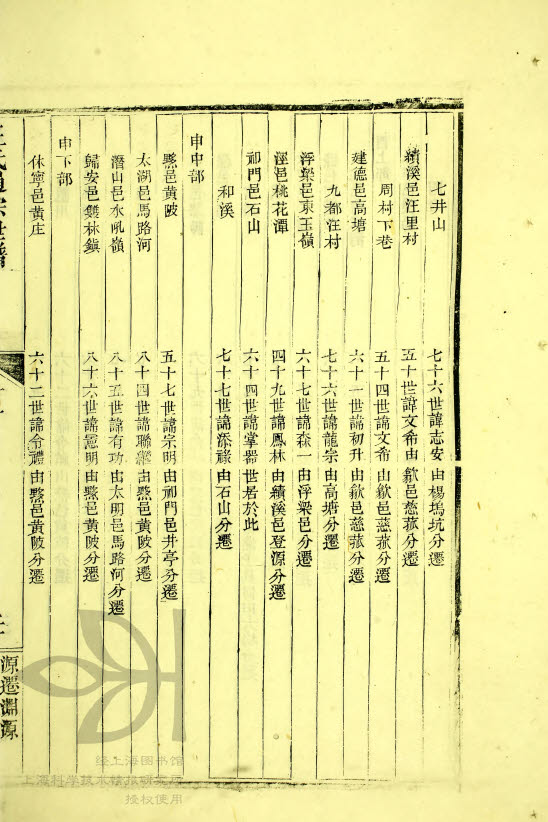 七井山 七十六世諱志安 由楊塢坑分遷
績溪邑汪里村 五十世諱文希 由歙邑慈菰分遷
周村下巷 五十四世諱文希 由歙邑慈菰分遷
建德邑高塘 六十一世諱初升 由歙邑慈菰分遷
九都汪村 七十六世諱龍宗 由高塘分遷
浮梁邑東玉嶺 六十七世諱森一 由浮梁邑分遷
涇邑桃花潭 四十九世諱鳳林 由績溪邑登源分遷
祁門邑石山 六十四世諱掌器 世居於此
和溪 七十七世諱添祿 由石山分遷
申中部
黟邑黃陂 五十七世諱宗明 由祁門邑井亭分遷
太湖邑馬路河 八十四世諱聯 由黟邑黃陂分遷
潛山邑水吼嶺 八十五世諱有功 由太明邑馬路河分遷
歸安邑雙林鎮 八十六世諱憲明 由黟邑黃陂分遷
申下部
休寧邑黃庄 六十二世諱令禮 由黟邑黃陂分遷
源遷淵源
经上海图书馆
上海科学技术情报研究所
授权使用